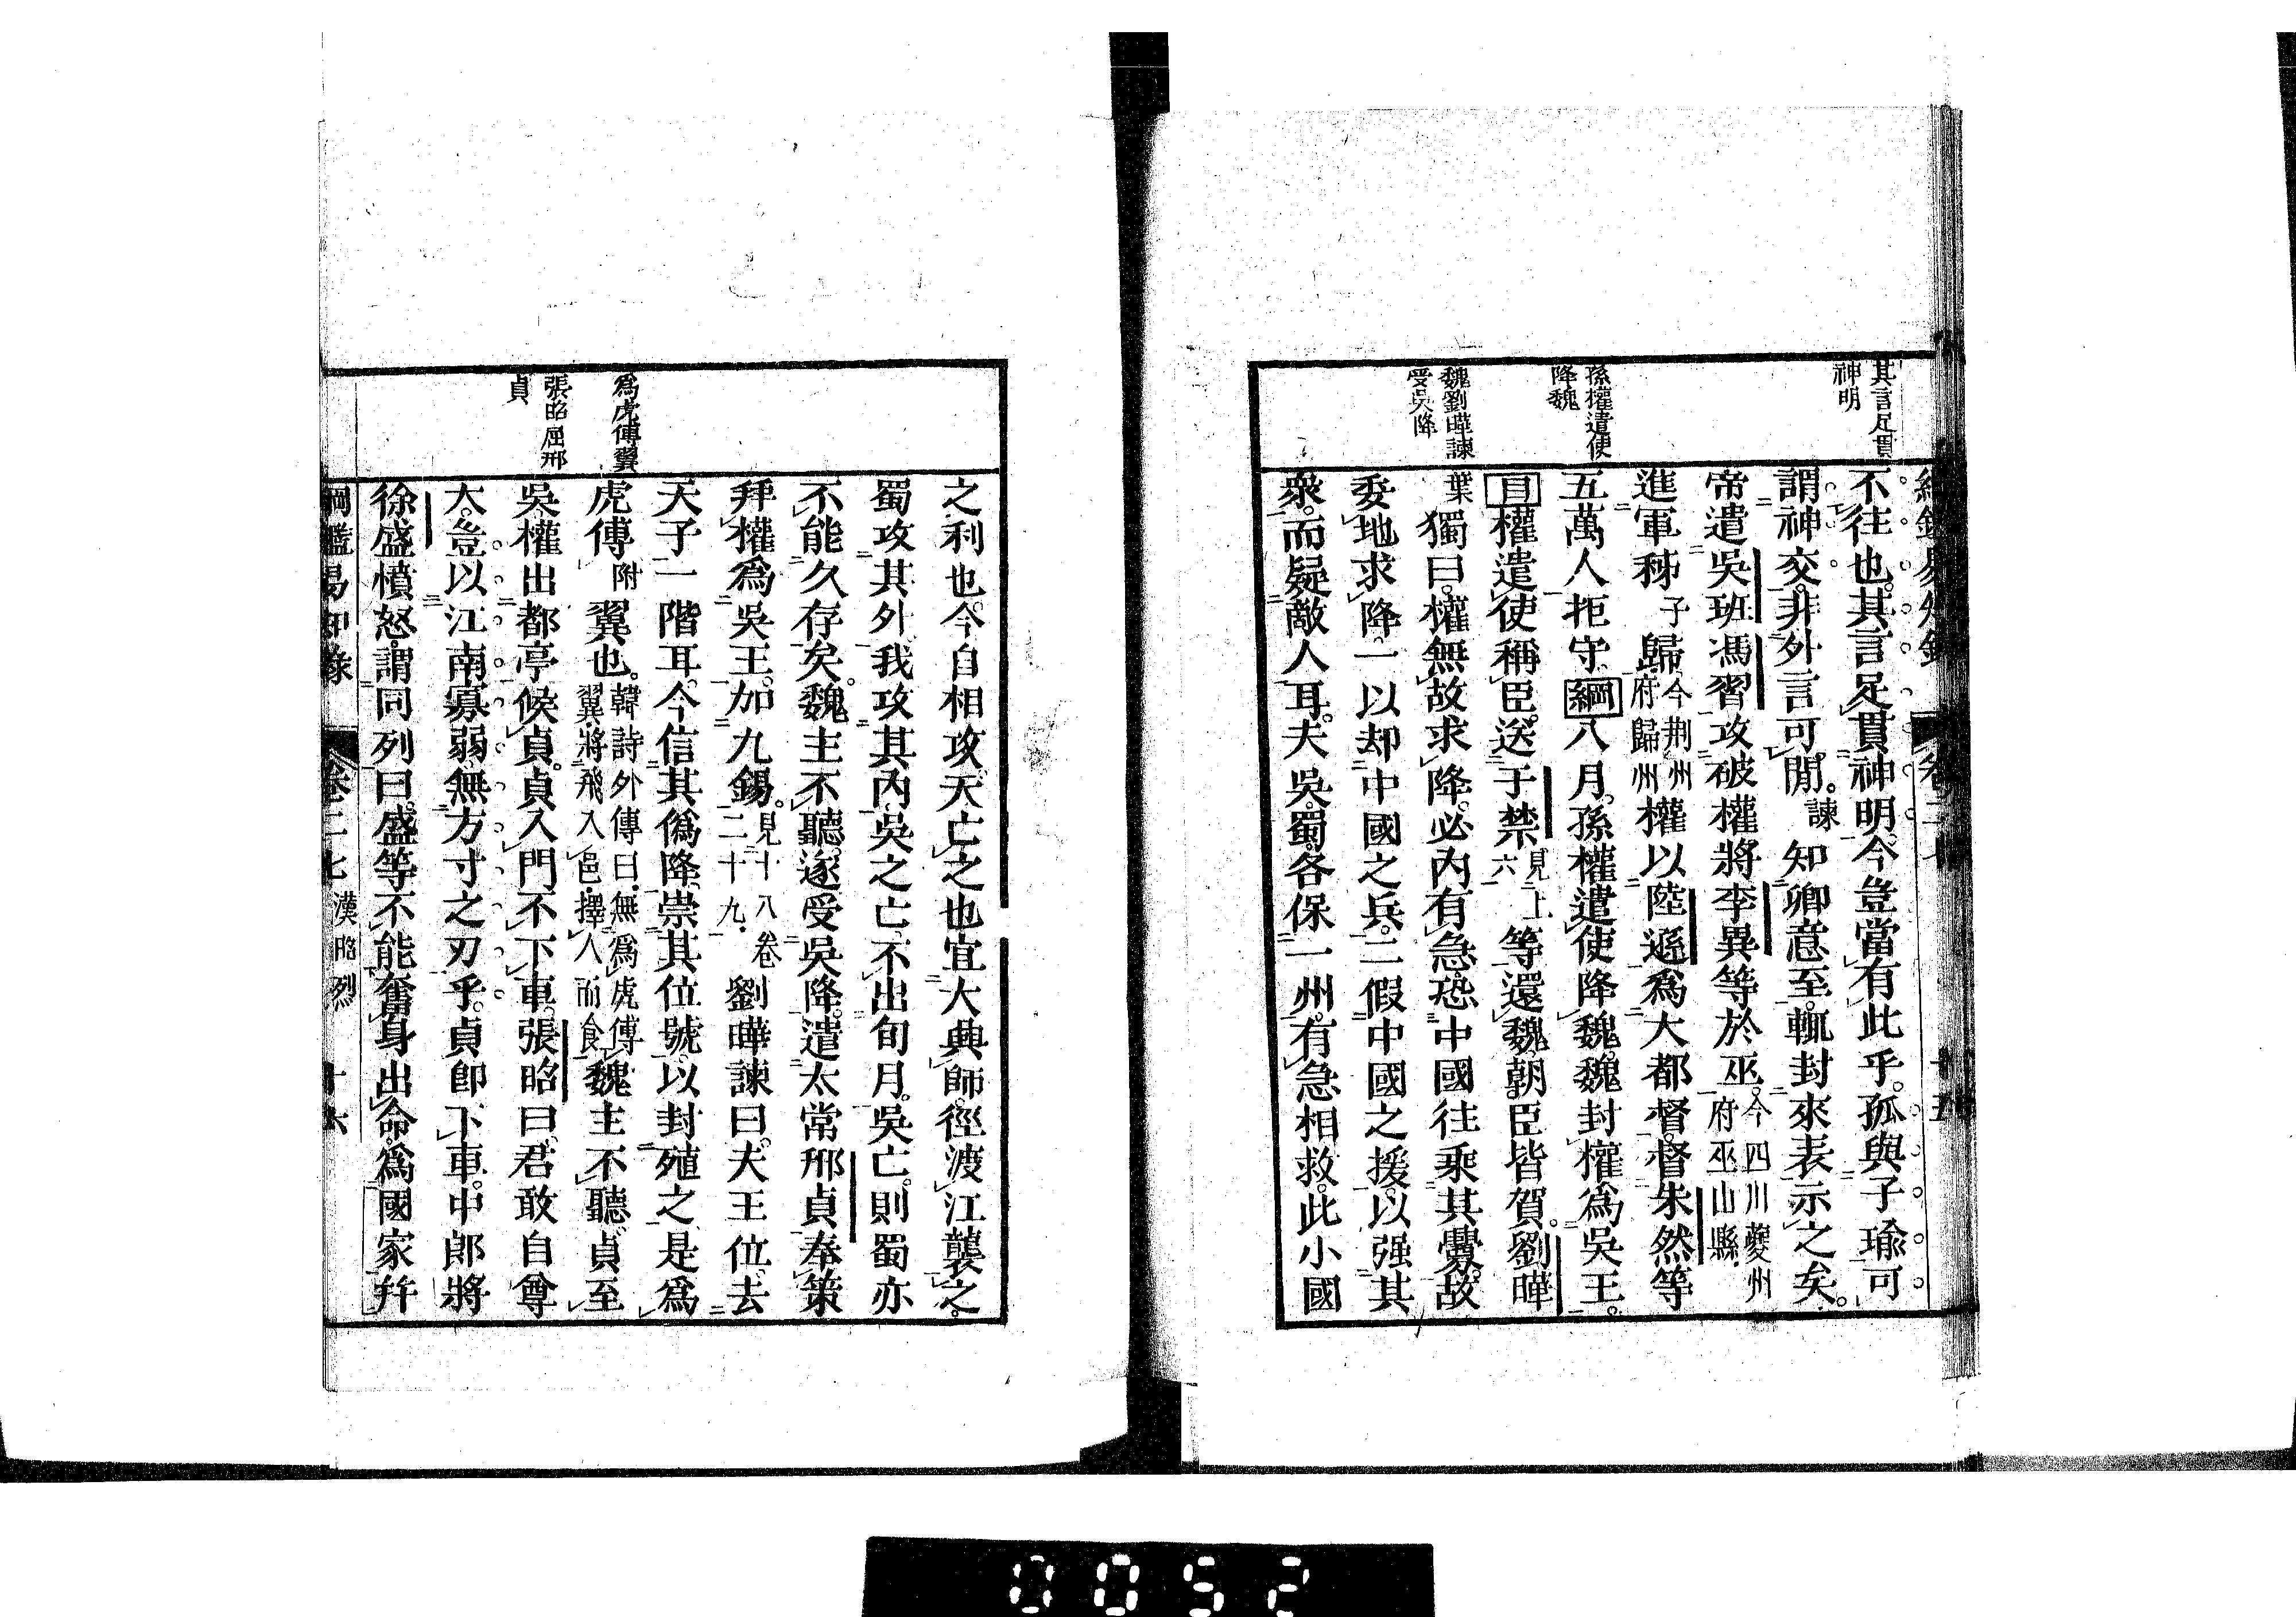 其言足貫
神明
孫權遣使
降魏
魏劉曄諫
受吳降
綱鑑易知錄 卷二七 十五
不往也。其言足貫神明。今豈當有此乎。孤與子瑜可
謂神交。非外言可閒。諫知卿意至。輒封來表示之矣。
帝遣吳班馮習攻破權將李異等於巫。今四川夔州府巫山縣。
進軍秭子歸。今荆州府歸州權以陸遜爲大都督。督朱然等
五萬人拒守。綱八月。孫權遣使降魏。魏封權爲吳王。
目權遣使稱臣。送于禁見上六等還魏。朝臣皆賀。劉曄
葉獨曰。權無故求降。必内有急。恐中國往乘其釁。故
委地求降。一以却中國之兵。二假中國之援。以强其
衆。而疑敵人耳。夫吳蜀各保一州。有急相救。此小國
爲虎傅翼
張昭屈邢
貞
之利也。今自相攻。天亡之也。宜大興師。徑渡江襲之。
蜀攻其外。我攻其内。吳之亡。不出旬月。吳亡。則蜀亦
不能久存矣。魏主不聽。遂受吳降。遣太常邢貞奉策
拜權爲吳王。加九錫。見十八卷二十九。劉曄諫曰。夫王位。去
天子一階耳。今信其僞降。崇其位號。以封殖之。是爲
虎傅附翼也。韓詩外傳曰。無爲虎傅翼。將飛入邑。擇人而食魏主不聽。貞至
吳。權出都亭候貞。貞入門不下車。張昭曰。君敢自尊
大。豈以江南寡弱無方寸之刃乎。貞即下車。中郎將
徐盛憤怒。謂同列曰。盛等不能奮身出命。爲國家幷
綱鑑易知錄 卷二七 漢昭烈 十六
0052